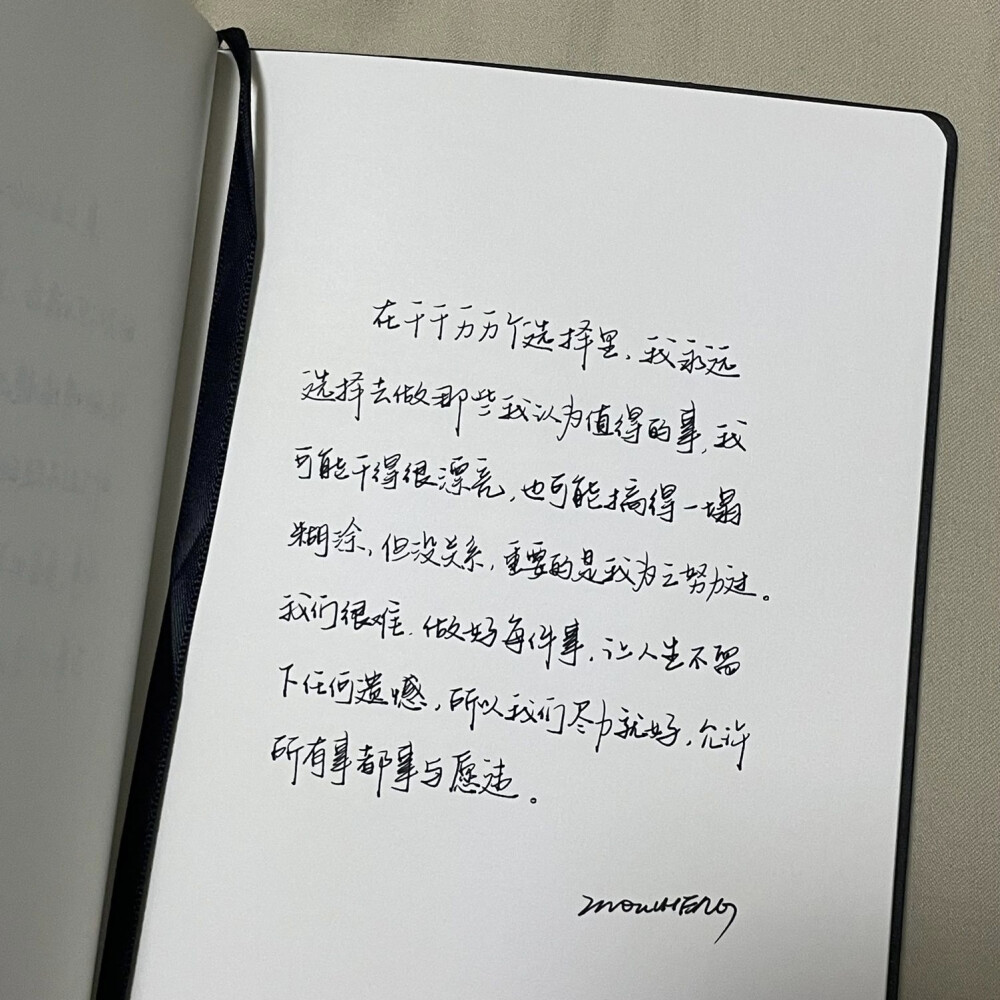 在千千万万个选择里，我永远
选择去做那些我认为值得的事，我
可能干得很漂亮，也可能搞得一塌
糊涂，但没关系，重要的是我为之努力过。
我们很难，做好每件事，让人生不留
下任何遗憾，所以我们尽力就好，允许
所有事都事与愿违。